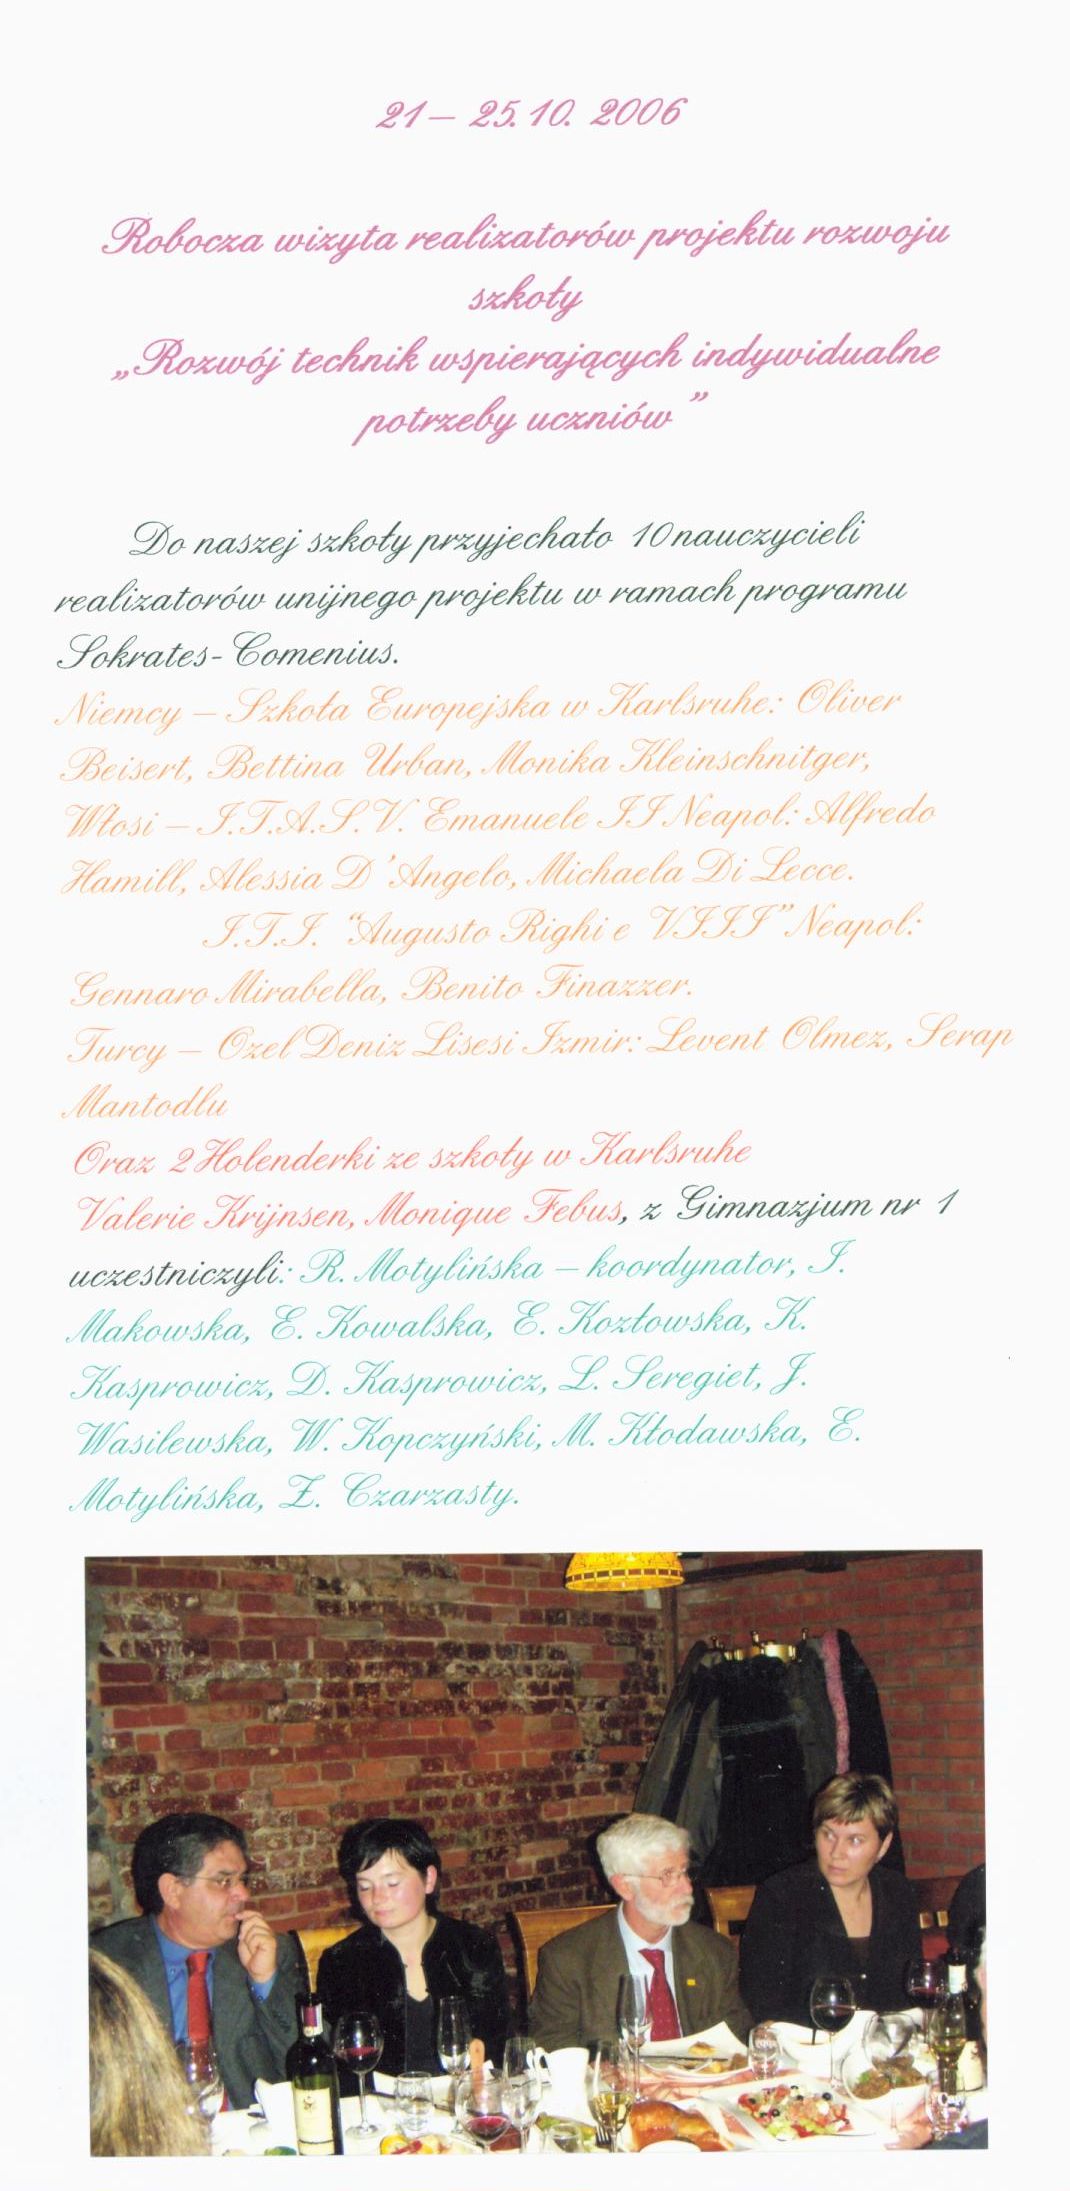 21 – 25.10. 2006
Robocza wizyta realizatorów projektu rozwoju
szkoły
„Rozwój technik wspierających indywidualne
potrzeby uczniów”
Do naszej szkoły przyjechało 10 nauczycieli
realizatorów unijnego projektu w ramach programu
Sokrates- Comenius.
Niemcy – Szkoła Europejska w Karlsruhe: Oliver
Beisert, Bettina Urban, Monika Kleinschnitger,
Włosi – I.T.A.S.V. Emanuele II Neapol: Alfredo
Hamill, Alessia D'Angelo, Michaela Di Lecce.
I.T.I. “Augusto Righi e VIII” Neapol:
Gennaro Mirabella, Benito Finazzer.
Turcy – Ozel Deniz Lisesi Izmir: Levent Olmez, Serap
Mantodlu
Oraz 2 Holenderki ze szkoły w Karlsruhe
Valerie Krijnsen, Monique Febus, z Gimnazjum nr 1
uczestniczyli: R. Motylińska – koordynator, I.
Makowska, E. Kowalska, E. Kozłowska, K.
Kasprowicz, D. Kasprowicz, L. Seregiet, J.
Wasilewska, W. Kopczyński, M. Kłodawska, E.
Motylińska, Z. Czarzasty.